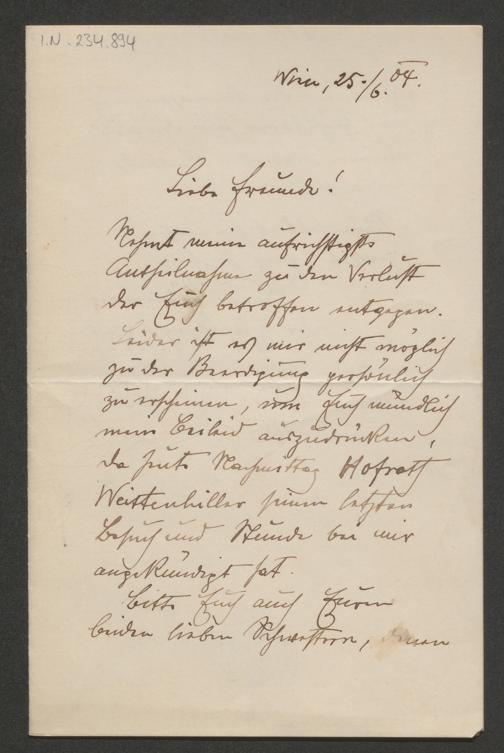 I.N. 234.894
Wien, 25./6. 04.
Liebe Freunde!
Nehmt meine aufrichtigste
Antheilnahme zu den Verlust
der Euch betroffen entgegen.
Leider ist es mir nicht möglich
zu der Beerdigung persönlich
zu erscheinen, um Euch mündlich
mein Beileid auszudrücken,
da heute Nachmittag Hofrath
Weittenhiller seinen letzten
Besuch und Stunde bei mir
angekündigt hat.
Bitte Euch auch Euren
beiden lieben Schwestern, denen